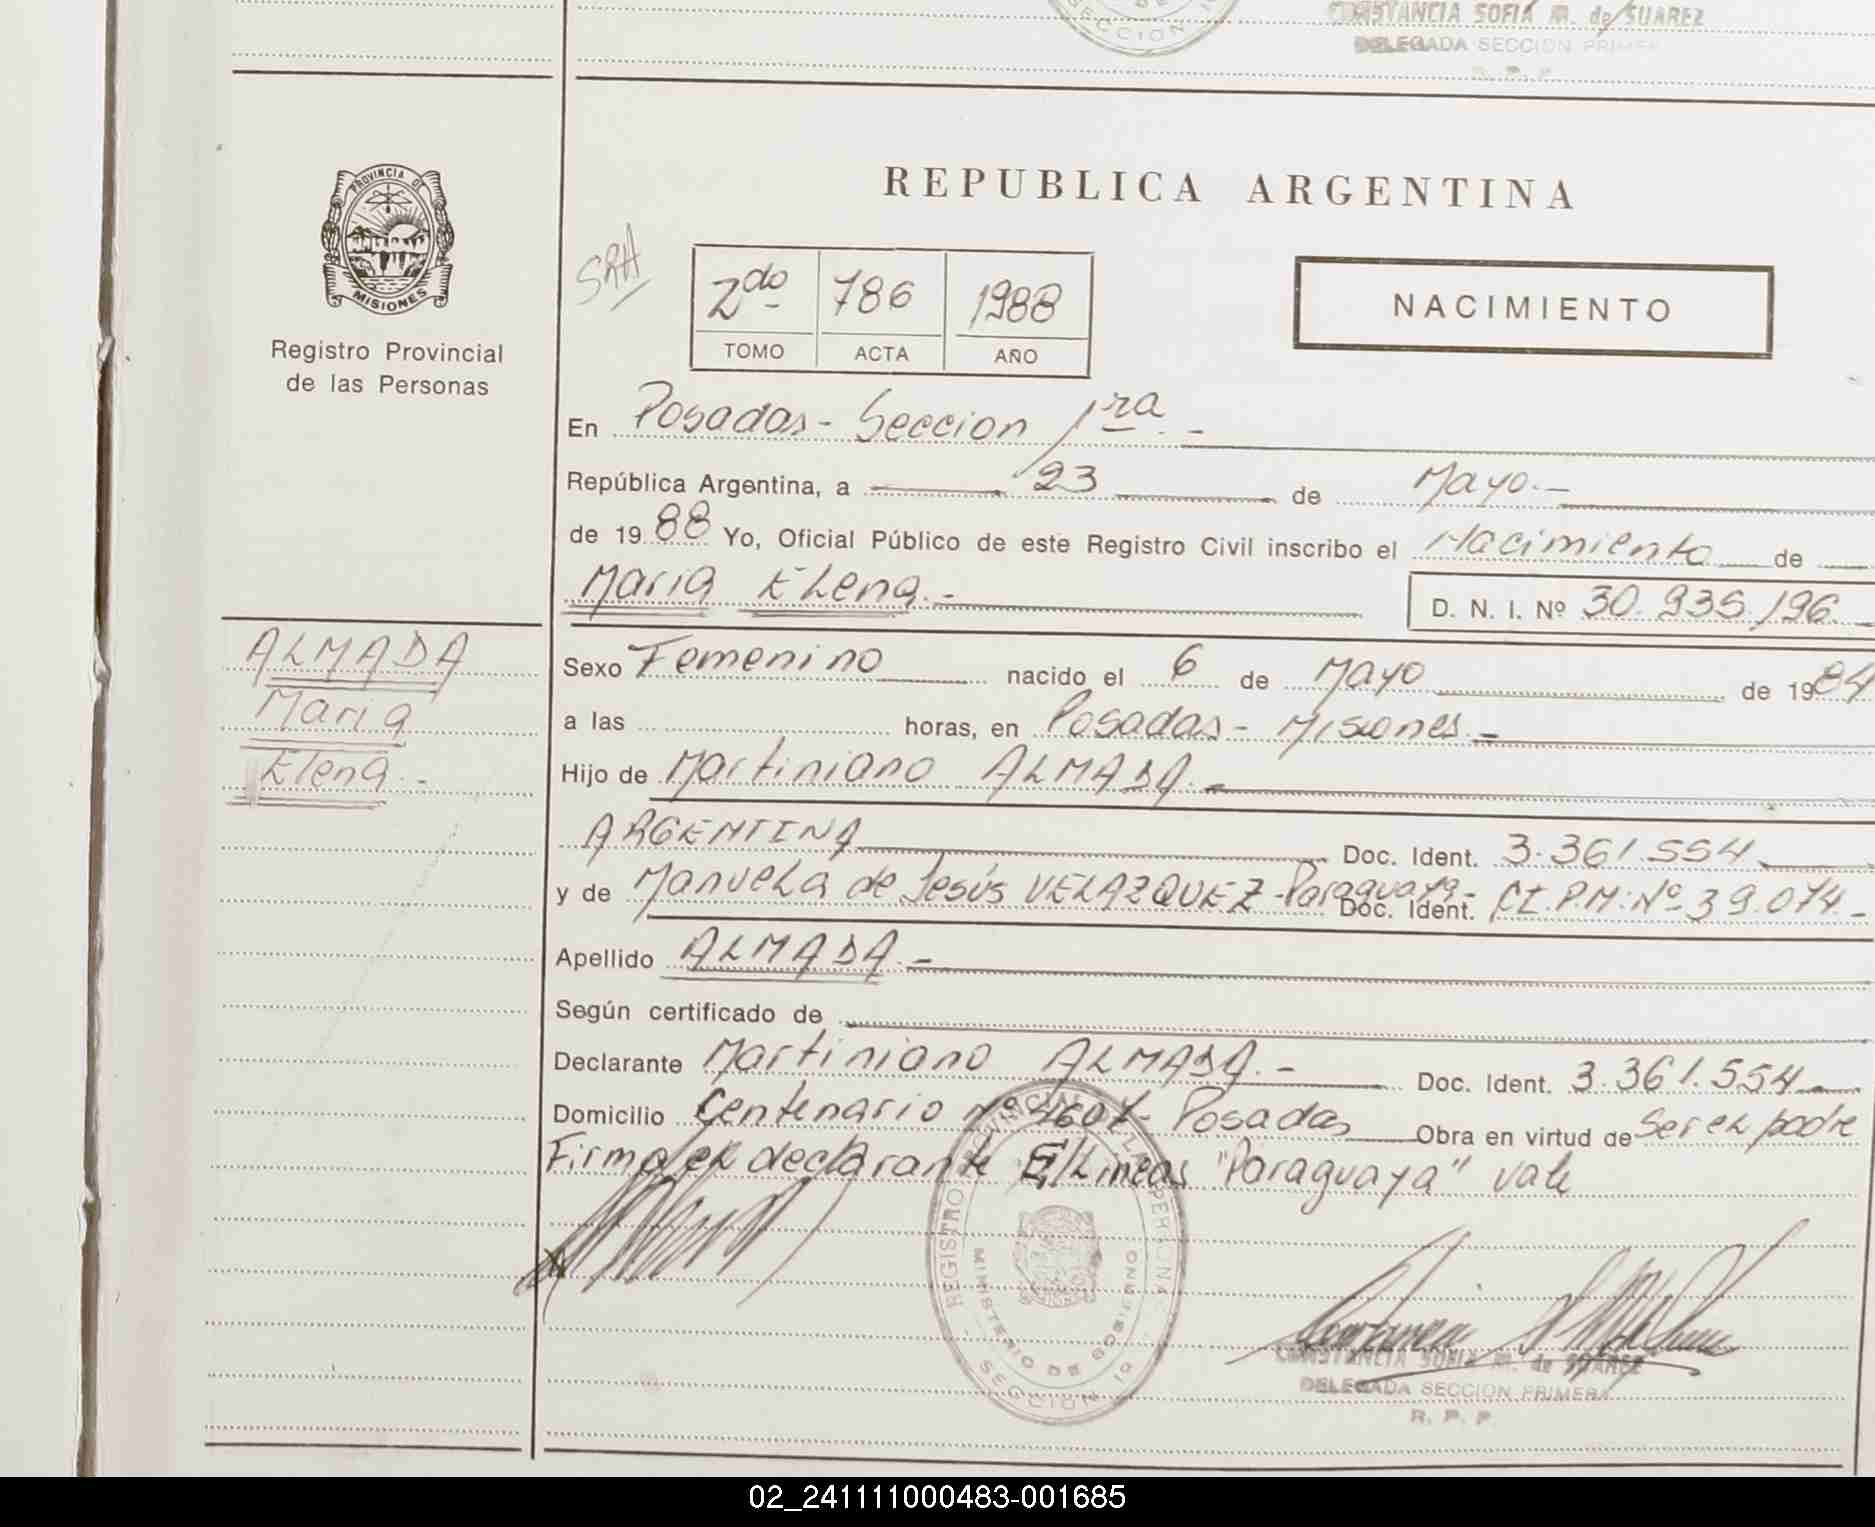 CONSTANCIA SOFIA M. de SUAREZ
DELEGADA SECCION PRIMERA
R. P. P.
SECCION
PROVINCIA DE
MISIONES
Registro Provincial
de las Personas
REPUBLICA ARGENTINA
SRH
2do 786 1988
TOMO ACTA AÑO
NACIMIENTO
En Posadas - Seccion 1ra. -
República Argentina, a 23 de Mayo. -
de 1988 Yo, Oficial Público de este Registro Civil inscribo el Nacimiento de
Maria Elena. -
D. N. I. Nº 30.935.196. -
ALMADA
Maria
Elena. -
Sexo Femenino nacido el 6 de Mayo de 1984
a las horas, en Posadas - Misiones. -
Hijo de Martiniano ALMADA. -
ARGENTINA Doc. Ident. 3.361.554
y de Manuela de Jesús VELAZQUEZ - Paraguaya - Doc. Ident. CI. P.M. Nº 39.074. -
Apellido ALMADA. -
Según certificado de
Declarante Martiniano ALMADA. - Doc. Ident. 3.361.554
Domicilio Centenario Nº Posadas Obra en virtud de Ser el padre
Firma el declarante E/Lineas "Paraguaya" vale
REGISTRO PROVINCIAL DE LAS PERSONAS
MINISTERIO DE GOBIERNO
SECCION 1a
CONSTANCIA SOFIA M. de SUAREZ
DELEGADA SECCION PRIMERA
R. P. P.
02_241111000483-001685